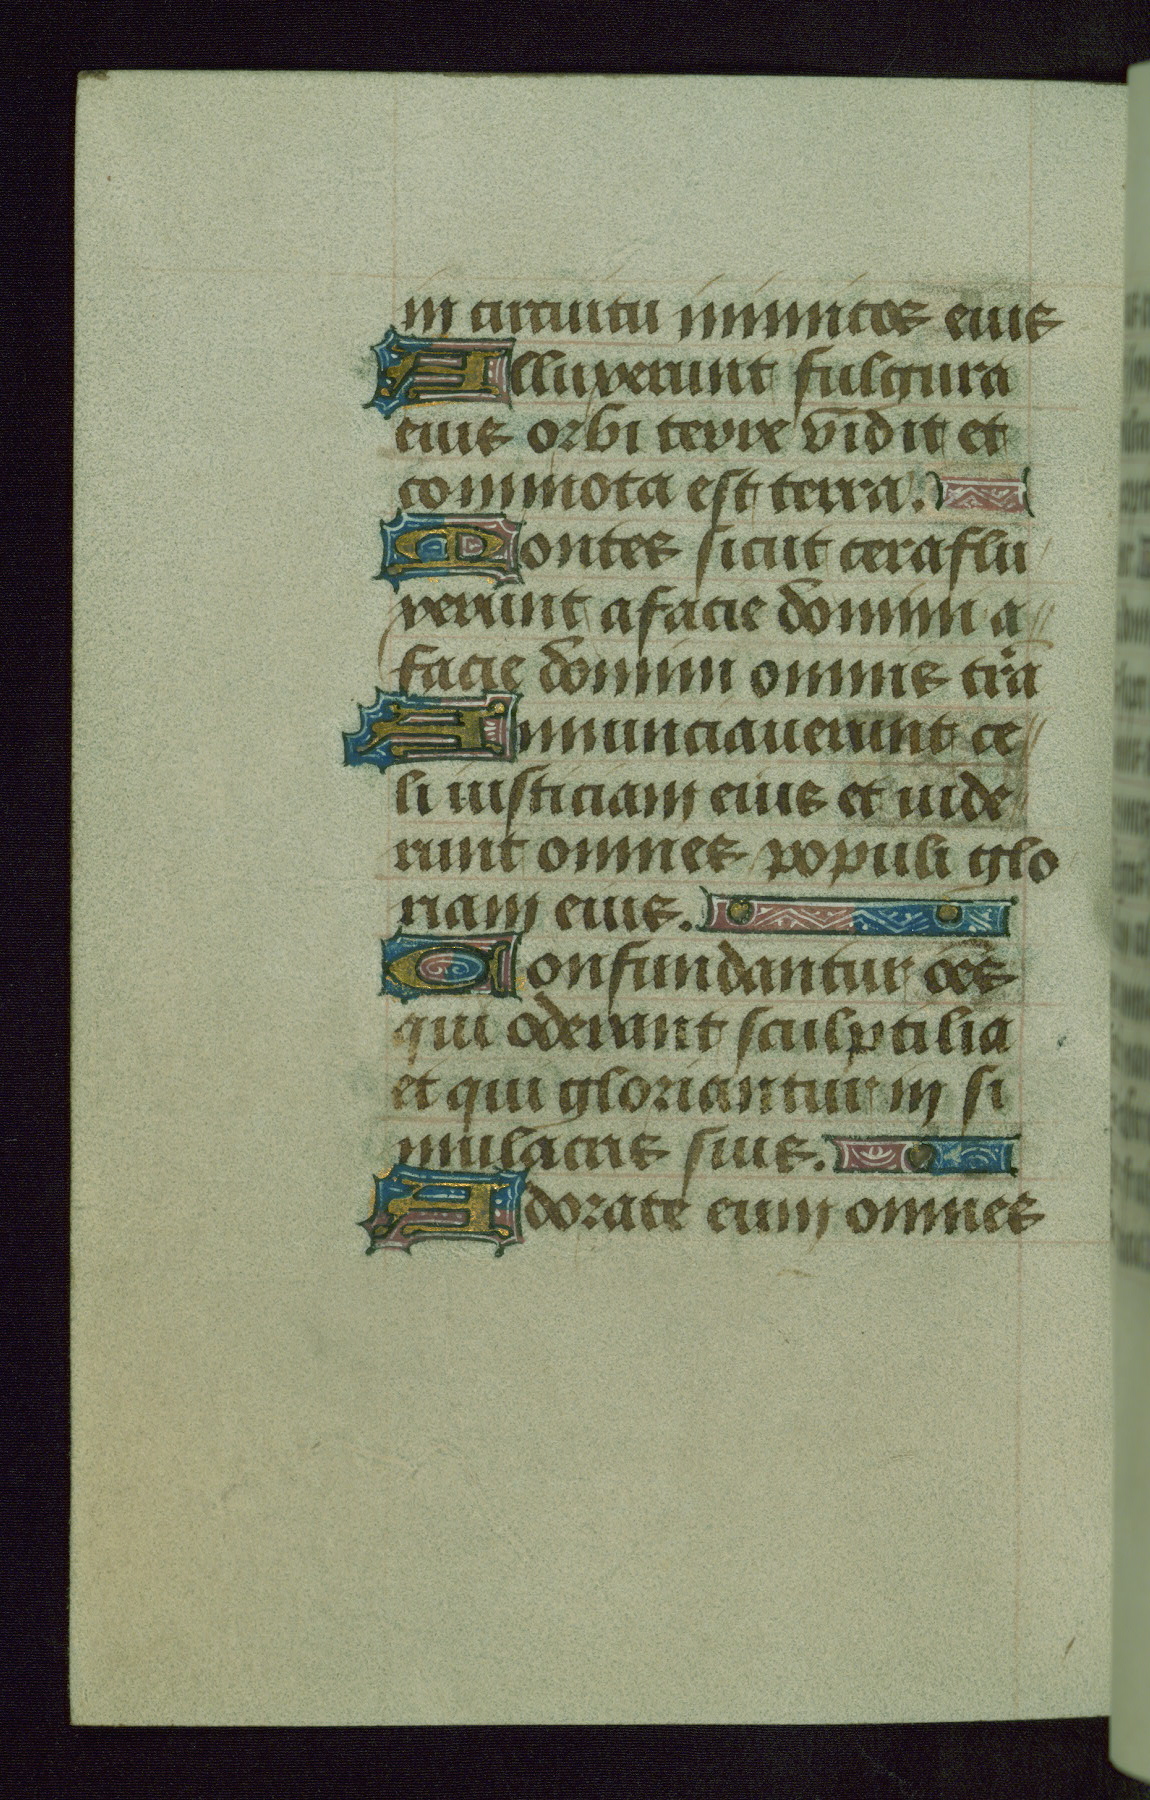 in circuitu inimicos eius
Alluxerunt fulgura
eius orbi terre vidit et
commota est terra.
Montes sicut cera flu
xerunt a facie domini a
facie domini omnis tr̃a
Annunciauerunt ce
li iusticiam eius et uide
runt omnes populi glo
riam eius.
Confundantur oēs
qui oderant sculptilia
et qui gloriantur in si
mulacris suis.
Adorate eum omnes